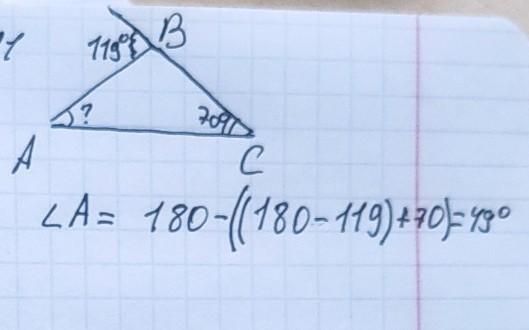 B
119°
?
70°
A
C
∠A = 180-((180-119)+70)=49°